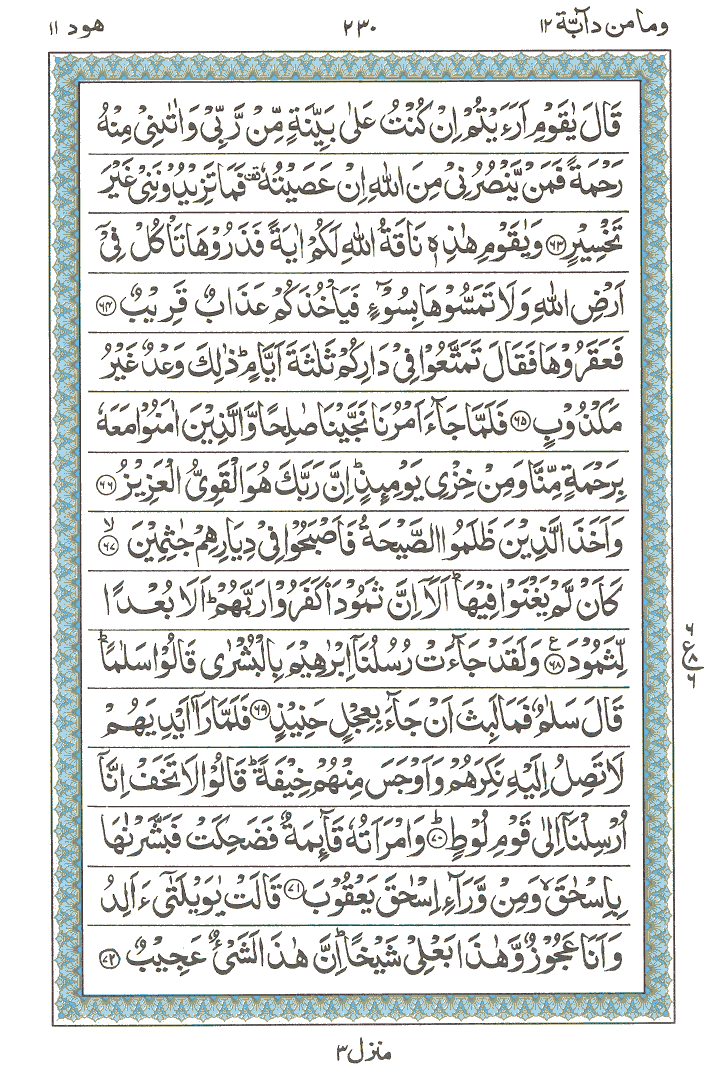 وما من دآبة ١٢
٢٣٠
هود ١١
قَالَ يٰقَوْمِ اَرَءَيْتُمْ اِنْ كُنْتُ عَلٰى بَيِّنَةٍ مِّنْ رَّبِّىْ وَاٰتٰىنِىْ مِنْهُ
رَحْمَةً فَمَنْ يَّنْصُرُنِىْ مِنَ اللّٰهِ اِنْ عَصَيْتُهٗ ۗ فَمَا تَزِيْدُوْنَنِىْ غَيْرَ
تَخْسِيْرٍ ﴿٦٣﴾ وَيٰقَوْمِ هٰذِهٖ نَاقَةُ اللّٰهِ لَكُمْ اٰيَةً فَذَرُوْهَا تَاْكُلْ فِىْۤ
اَرْضِ اللّٰهِ وَلَا تَمَسُّوْهَا بِسُوْٓءٍ فَيَاْخُذَكُمْ عَذَابٌ قَرِيْبٌ ﴿٦٤﴾
فَعَقَرُوْهَا فَقَالَ تَمَتَّعُوْا فِىْ دَارِكُمْ ثَلٰثَةَ اَيَّامٍ ؕ ذٰلِكَ وَعْدٌ غَيْرُ
مَكْذُوْبٍ ﴿٦٥﴾ فَلَمَّا جَآءَ اَمْرُنَا نَجَّيْنَا صٰلِحًا وَّالَّذِيْنَ اٰمَنُوْا مَعَهٗ
بِرَحْمَةٍ مِّنَّا وَمِنْ خِزْىِ يَوْمِئِذٍ ؕ اِنَّ رَبَّكَ هُوَ الْقَوِىُّ الْعَزِيْزُ ﴿٦٦﴾
وَاَخَذَ الَّذِيْنَ ظَلَمُوا الصَّيْحَةُ فَاَصْبَحُوْا فِىْ دِيَارِهِمْ جٰثِمِيْنَ ۙ﴿٦٧﴾
كَاَنْ لَّمْ يَغْنَوْا فِيْهَا ؕ اَلَاۤ اِنَّ ثَمُوْدَا۟ كَفَرُوْا رَبَّهُمْ ؕ اَلَا بُعْدًا
لِّثَمُوْدَ ﴿٦٨﴾ ع وَلَقَدْ جَآءَتْ رُسُلُنَاۤ اِبْرٰهِيْمَ بِالْبُشْرٰى قَالُوْا سَلٰمًا ؕ
قَالَ سَلٰمٌ فَمَا لَبِثَ اَنْ جَآءَ بِعِجْلٍ حَنِيْذٍ ﴿٦٩﴾ فَلَمَّا رَاٰۤ اَيْدِيَهُمْ
لَا تَصِلُ اِلَيْهِ نَكِرَهُمْ وَاَوْجَسَ مِنْهُمْ خِيْفَةً ؕ قَالُوْا لَا تَخَفْ اِنَّاۤ
اُرْسِلْنَاۤ اِلٰى قَوْمِ لُوْطٍ ؕ﴿٧٠﴾ وَامْرَاَتُهٗ قَآئِمَةٌ فَضَحِكَتْ فَبَشَّرْنٰهَا
بِاِسْحٰقَ ۙ وَمِنْ وَّرَآءِ اِسْحٰقَ يَعْقُوْبَ ﴿٧١﴾ قَالَتْ يٰوَيْلَتٰٓى ءَاَلِدُ
وَاَنَا عَجُوْزٌ وَّهٰذَا بَعْلِىْ شَيْخًا ؕ اِنَّ هٰذَا لَشَىْءٌ عَجِيْبٌ ﴿٧٢﴾
٦
ع ٨
٦
منزل ٣